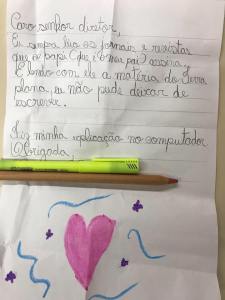 Caro senhor diretor,
Eu sempre leio os jornais e revistas
que o papai (que é o meu pai) assina.
E lendo com ele a matéria do Terra
plana, eu não pude deixar de
escrever.
Fiz minha explicação no computador
Obrigada,